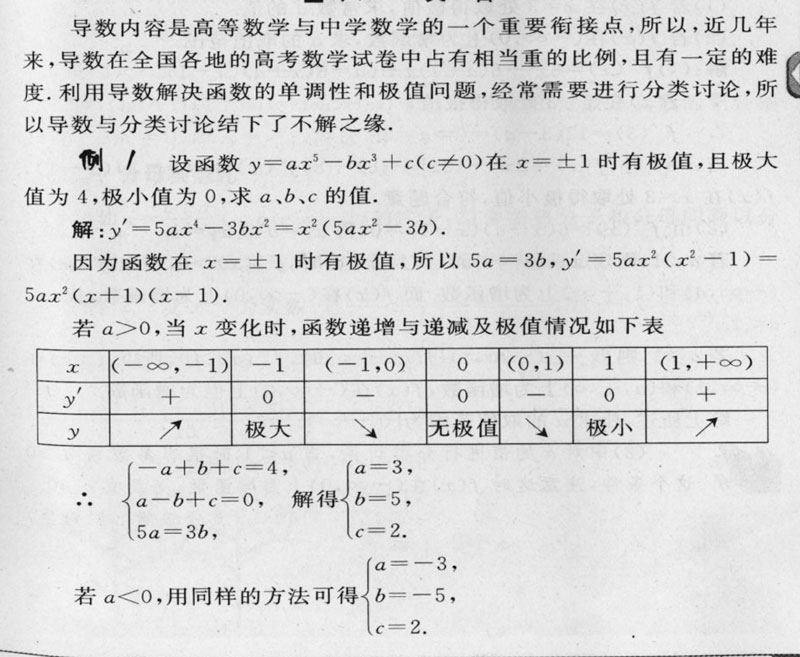 导数内容是高等数学与中学数学的一个重要衔接点,所以,近几年
来,导数在全国各地的高考数学试卷中占有相当重的比例,且有一定的难
度.利用导数解决函数的单调性和极值问题,经常需要进行分类讨论,所
以导数与分类讨论结下了不解之缘.
例1 设函数 y=ax⁵-bx³+c(c≠0)在 x=±1 时有极值,且极大
值为 4,极小值为 0,求 a、b、c 的值.
解:y′=5ax⁴-3bx²=x²(5ax²-3b).
因为函数在 x=±1 时有极值,所以 5a=3b,y′=5ax²(x²-1)=
5ax²(x+1)(x-1).
若 a>0,当 x 变化时,函数递增与递减及极值情况如下表
x (-∞,-1) -1 (-1,0) 0 (0,1) 1 (1,+∞)
y′ + 0 - 0 - 0 +
y ↗ 极大 ↘ 无极值 ↘ 极小 ↗
-a+b+c=4, a=3,
∴ a-b+c=0, 解得 b=5,
5a=3b, c=2.
a=-3,
若 a<0,用同样的方法可得 b=-5,
c=2.